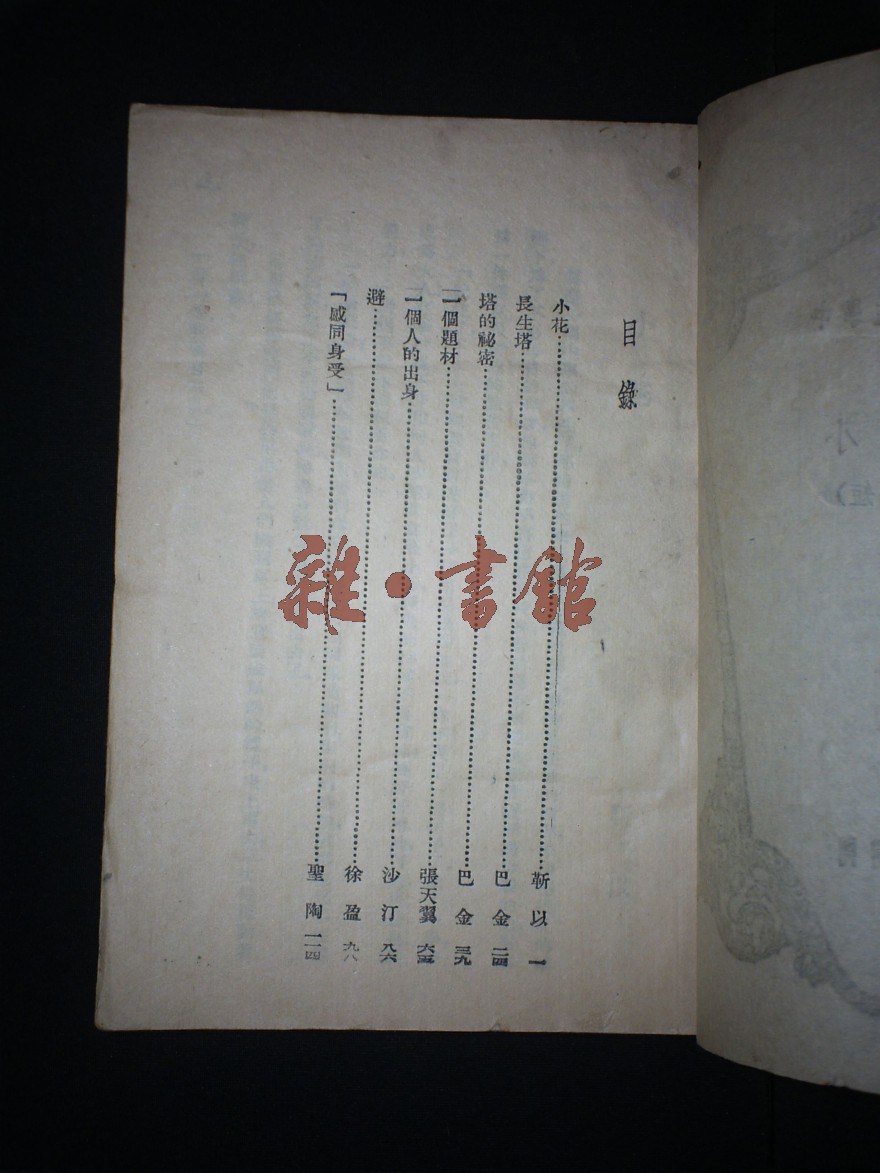 目錄
小花 靳以 一
長生塔 巴金 二四
塔的祕密 巴金 三九
一個題材 張天翼 六五
一個人的出身 沙汀 八六
避 徐盈 九八
「感同身受」 聖陶 一一四
雜·書館